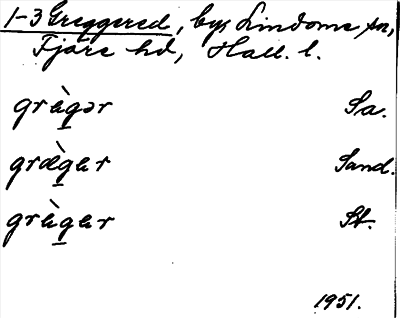 1-3 Greggered, bys Lindome sn,
Fjäre hd, Hall. l.
grὲg̲ər Sa.
græ̀g̲ɛr Sand.
grὲg̲ɛr St.
1951.